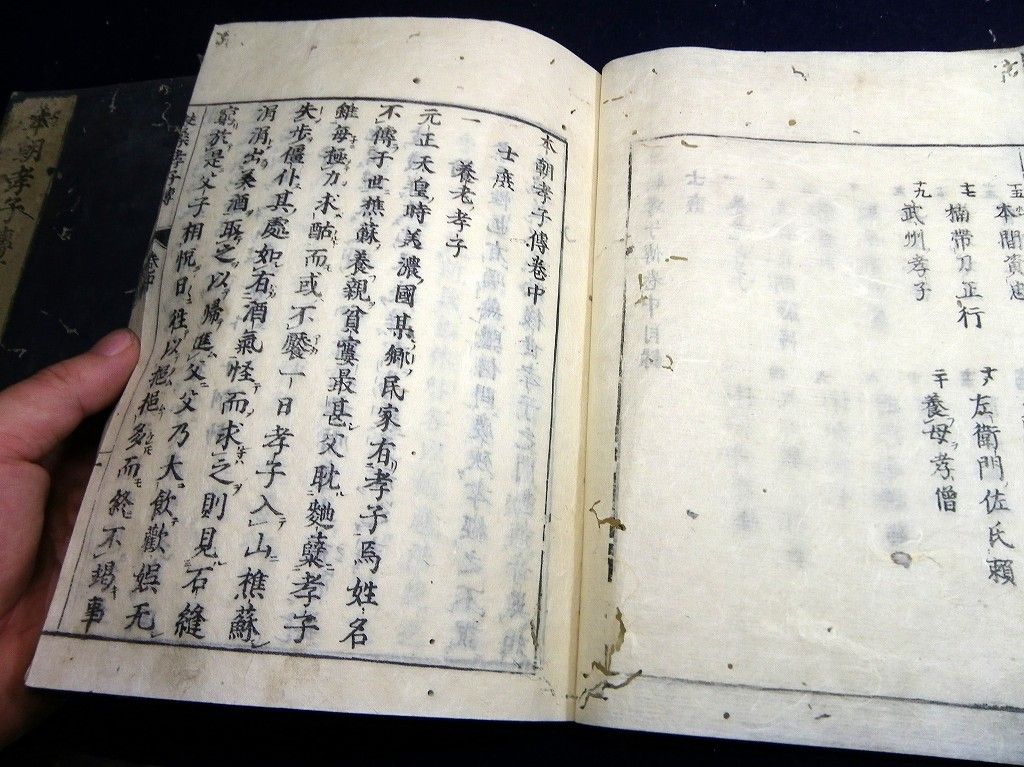 十五 本間資忠
十七 楠帯刀正行 十八 左衛門佐氏頼
十九 武州孝子 二十 養母孝僧
本朝孝子傳卷中
士庶
一 養老孝子
元正天皇時美濃國某鄉民家有孝子焉姓名
不傳子世樵蘇養親貧寠最甚父耽麯糵孝子
雖每極力求酤而或不饜一日孝子入山樵蘇
失步僵仆其處如有酒氣怪而求之則見石縫
涓涓出美酒取之以歸進父父乃大飲歡娛无
窮於是父子相悅日往以挹挹多而終不竭事
本朝孝子傳